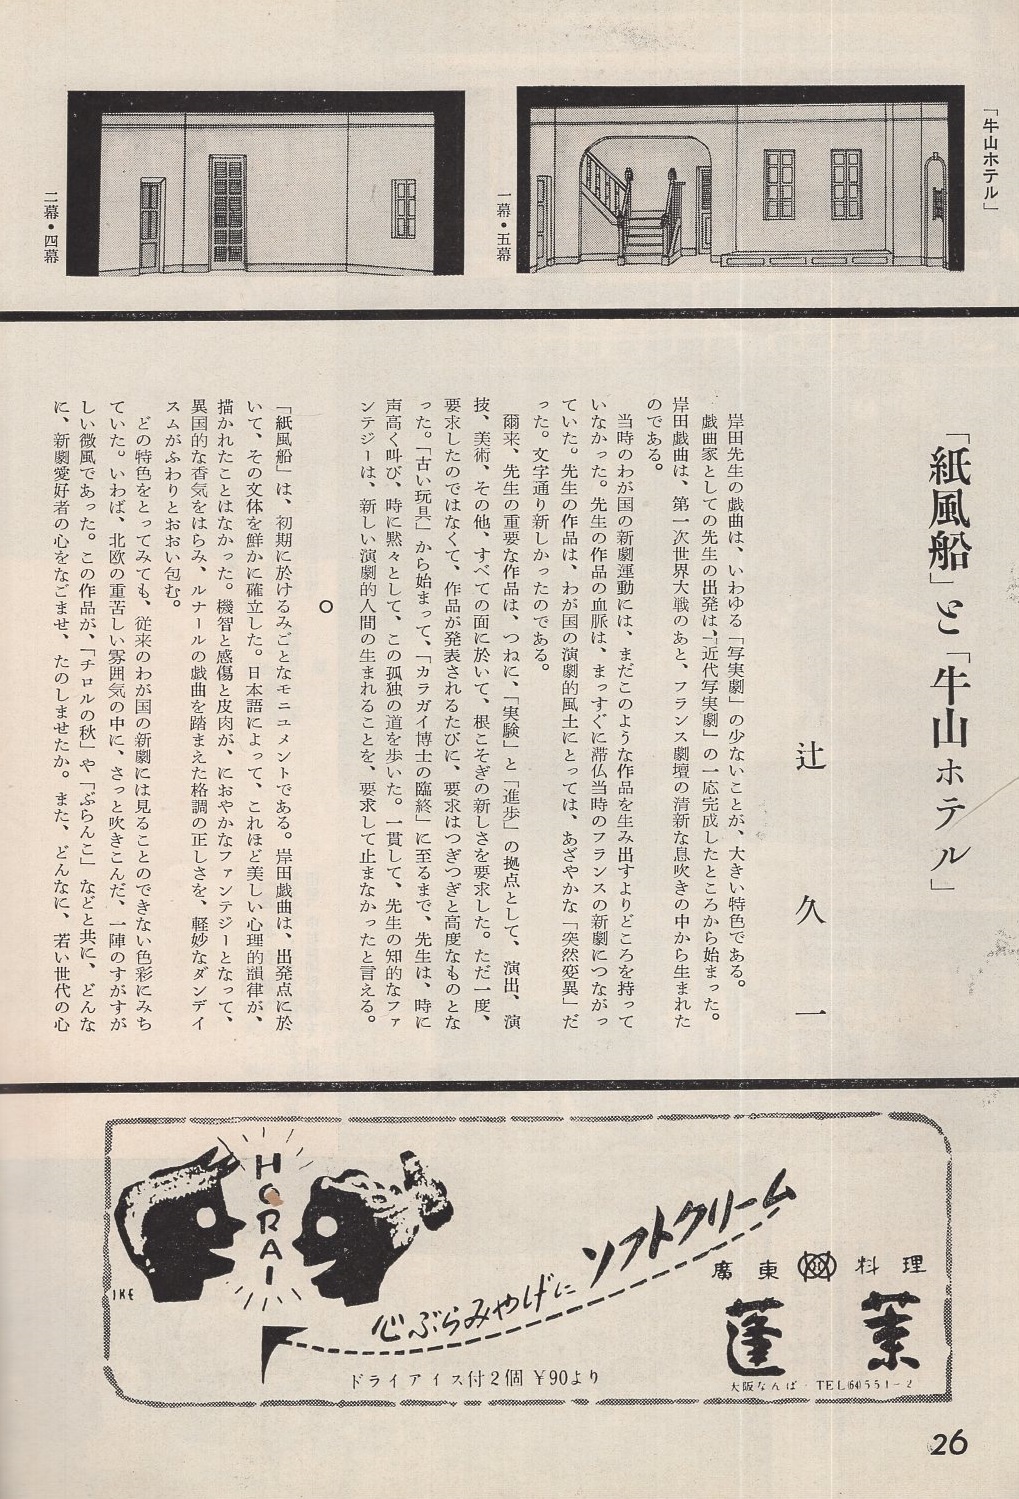 「牛山ホテル」
一幕・五幕
二幕・四幕
「紙風船」と「牛山ホテル」
辻久一
岸田先生の戯曲は、いわゆる「写実劇」の少ないことが、大きい特色である。
戯曲家としての先生の出発は、「近代写実劇」の一応完成したところから始まった。
岸田戯曲は、第一次世界大戦のあと、フランス劇壇の清新な息吹きの中から生まれた
のである。
当時のわが国の新劇運動には、まだこのような作品を生み出すよりどころを持って
いなかった。先生の作品の血脈は、まっすぐに滞仏当時のフランスの新劇につながっ
ていた。先生の作品は、わが国の演劇的風土にとっては、あざやかな「突然変異」だ
った。文字通り新しかったのである。
爾来、先生の重要な作品は、つねに、「実験」と「進歩」の拠点として、演出、演
技、美術、その他、すべての面に於いて、根こそぎの新しさを要求した。ただ一度、
要求したのではなくて、作品が発表されるたびに、要求はつぎつぎと高度なものとな
った。「古い玩具」から始まって、「カラガイ博士の臨終」に至るまで、先生は、時に
声高く叫び、時に黙々として、この孤独の道を歩いた。一貫して、先生の知的なファ
ンテジーは、新しい演劇的人間の生まれることを、要求して止まなかったと言える。
○
「紙風船」は、初期に於けるみごとなモニュメントである。岸田戯曲は、出発点に於
いて、その文体を鮮かに確立した。日本語によって、これほど美しい心理的韻律が、
描かれたことはなかった。機智と感傷と皮肉が、におやかなファンテジーとなって、
異国的な香気をはらみ、ルナールの戯曲を踏まえた格調の正しさを、軽妙なダンデイ
スムがふわりとおおい包む。
どの特色をとってみても、従来のわが国の新劇には見ることのできない色彩にみち
ていた。いわば、北欧の重苦しい雰囲気の中に、さっと吹きこんだ、一陣のすがすが
しい微風であった。この作品が、「チロルの秋」や「ぶらんこ」などと共に、どんな
に、新劇愛好者の心をなごませ、たのしませたか。また、どんなに、若い世代の心
HORAI
IKE
心ぶらみやげに
ソフトクリーム
ドライアイス付2個 ¥90より
廣東料理
蓬莱
大阪なんば・TEL(64)551-2
26